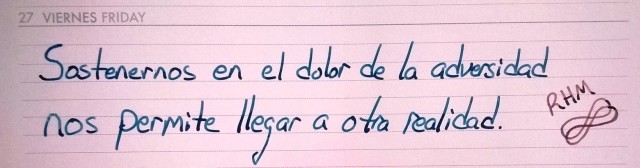 27 VIERNES FRIDAY
Sostenernos en el dolor de la adversidad
nos permite llegar a otra realidad.
RHM